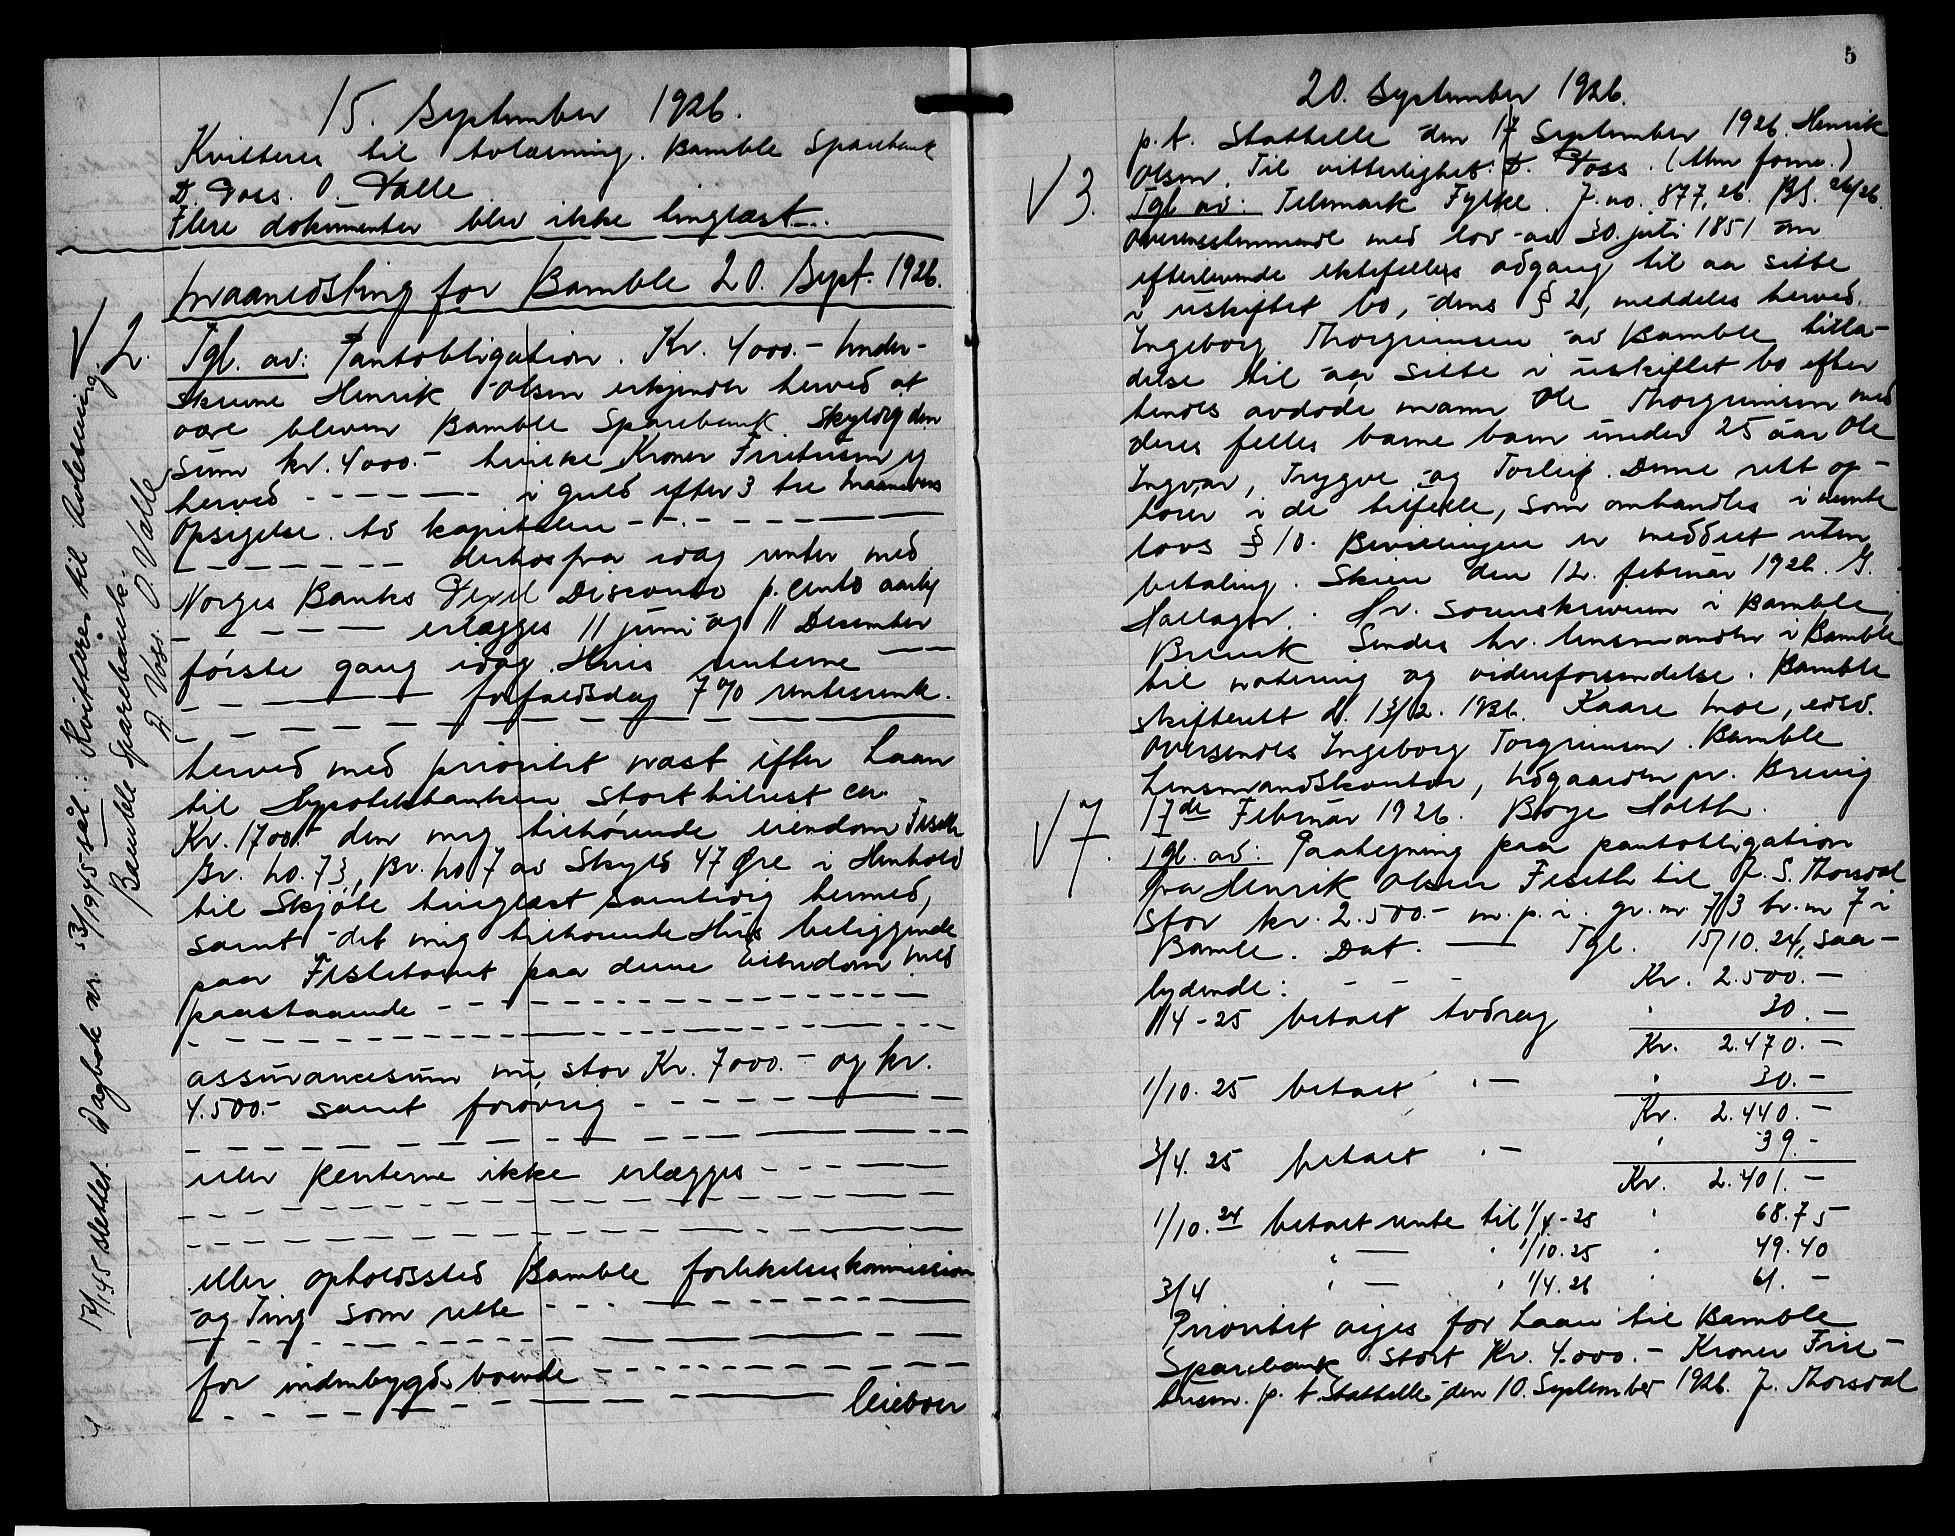 15. September 1926.
Kvitteres til avlæsning. Bamble Sparebank
D. Voss. O. Valle
Flere dokumenter blev ikke tinglæst.
Maanedsting for Bamble 20. Sept. 1926.
2. Tgl. av: Pantobligation. Kr. 4000.- Under-
skrevne Henrik Olsen erkjender herved at
være bleven Bamble Sparebank skyldig den
sum kr. 4000.- skriver Kroner Firetusen og
herved - - - - - - - i guld efter 3 tre maaneders
Opsigelse. Av kapitalen - - - - - -
- - - - - - - derhos fra idag renter med
Norges Banks Disconto p. cento aarlig
- - - - - - erlægges 11 juni og 11 December
første gang idag. Hvis renterne - -
- - - - - - forfaldsdag 7 % rentesrente.
- - - - - - - - - -
herved med prioritet næst efter Laan
til Hypotekbanken stort tilrest ca.
Kr. 1700.- den mig tilhørende eiendom Feseth
Gr. no. 73, Br. no 7 av Skyld 47 Øre i Henhold
til Skjøte tinglæst samtidig hermed,
samt det mig tilhørende Hus beliggende
paa Feseth paa denne Eiendom med
paastaaende - - - - - - - -
- - - - - - - - - -
assurancesum nu stor Kr. 7000.- og kr.
4.500.- samt forøvrig - - - - - -
- - - - - - - - - -
eller Renterne ikke erlægges - - - - -
- - - - - - - - - -
- - - - - - - - - -
eller opholdssted Bamble forlikelseskommission
og Ting som rette - - - - - - -
- - - - - - - - - -
for indenbygds boende - - - - - - -
- - - - - - - - - - leieboer
17/1 45 slettet. Dagbok nr. 53/1945 sål: Kvitteres til avlesning.
Bamble Sparebank
D. Voss. O. Valle
5
20. September 1926.
p.t. Stathelle den 17 September 1926. Henrik
Olsen. Til vitterlighet: D. Voss. (Alm form.)
3. Tgl av: Telemark Fylke. J. no. 877, 26. BS. 26/26.
Overensstemmende med lov av 30. juli 1851 om
efterlevende ektefelles adgang til aa sitte
i uskiftet bo, dens § 2, meddeles herved
Ingeborg Thorgrimsen av Bamble tilla-
delse til aa sitte i uskiftet bo efter
hendes avdøde mann Ole Thorgrimsen med
deres felles barn under 25 aar Ole
Ingvar, Trygve og Torleif. Denne rett op-
hører i de tilfelle, som omhandles i nevnte
lovs § 10. Bevillingen er meddelt uten
betaling. Skien den 12. februar 1926. G.
Hallager. Hr. sorenskriveren i Bamble,
Brevik. Sendes hr. lensmanden i Bamble
til notering og videreforsendelse. Bamble
skifterett d. 13/2. 1926. Kaare Moe, edsv.
Oversendes Ingeborg Torgrimsen. Bamble
Lensmandskontor, Udgaarden pr. Brevig
17de Februar 1926. Børge Holth.
7. Tgl. av: Paategning paa pantobligation
fra Henrik Olsen Feseth til J. S. Thorsdal
stor kr. 2.500.- m. p. i. gr. nr 73 br. nr 7 i
Bamle. Dat. — Tgl. 15/10. 24, saa-
lydende: - - - Kr. 2.500.-
1/4-25 betalt Avdrag " 30.-
Kr. 2.470.-
1/10. 25 betalt " - " 30.-
Kr. 2.440.-
3/4. 25 betalt " - " 39.-
Kr. 2.401.-
1/10. 24 betalt rente til 1/4-25 " 68.75
" — " 1/10.25 " 49.40
3/4 " — " 1/4.26 " 61.-
Prioritet viges for Laan til Bamble
Sparebank stort Kr. 4.000.- Kroner Fire-
tusen. p. t. Stathelle den 10. September 1926. J. Thorsdal